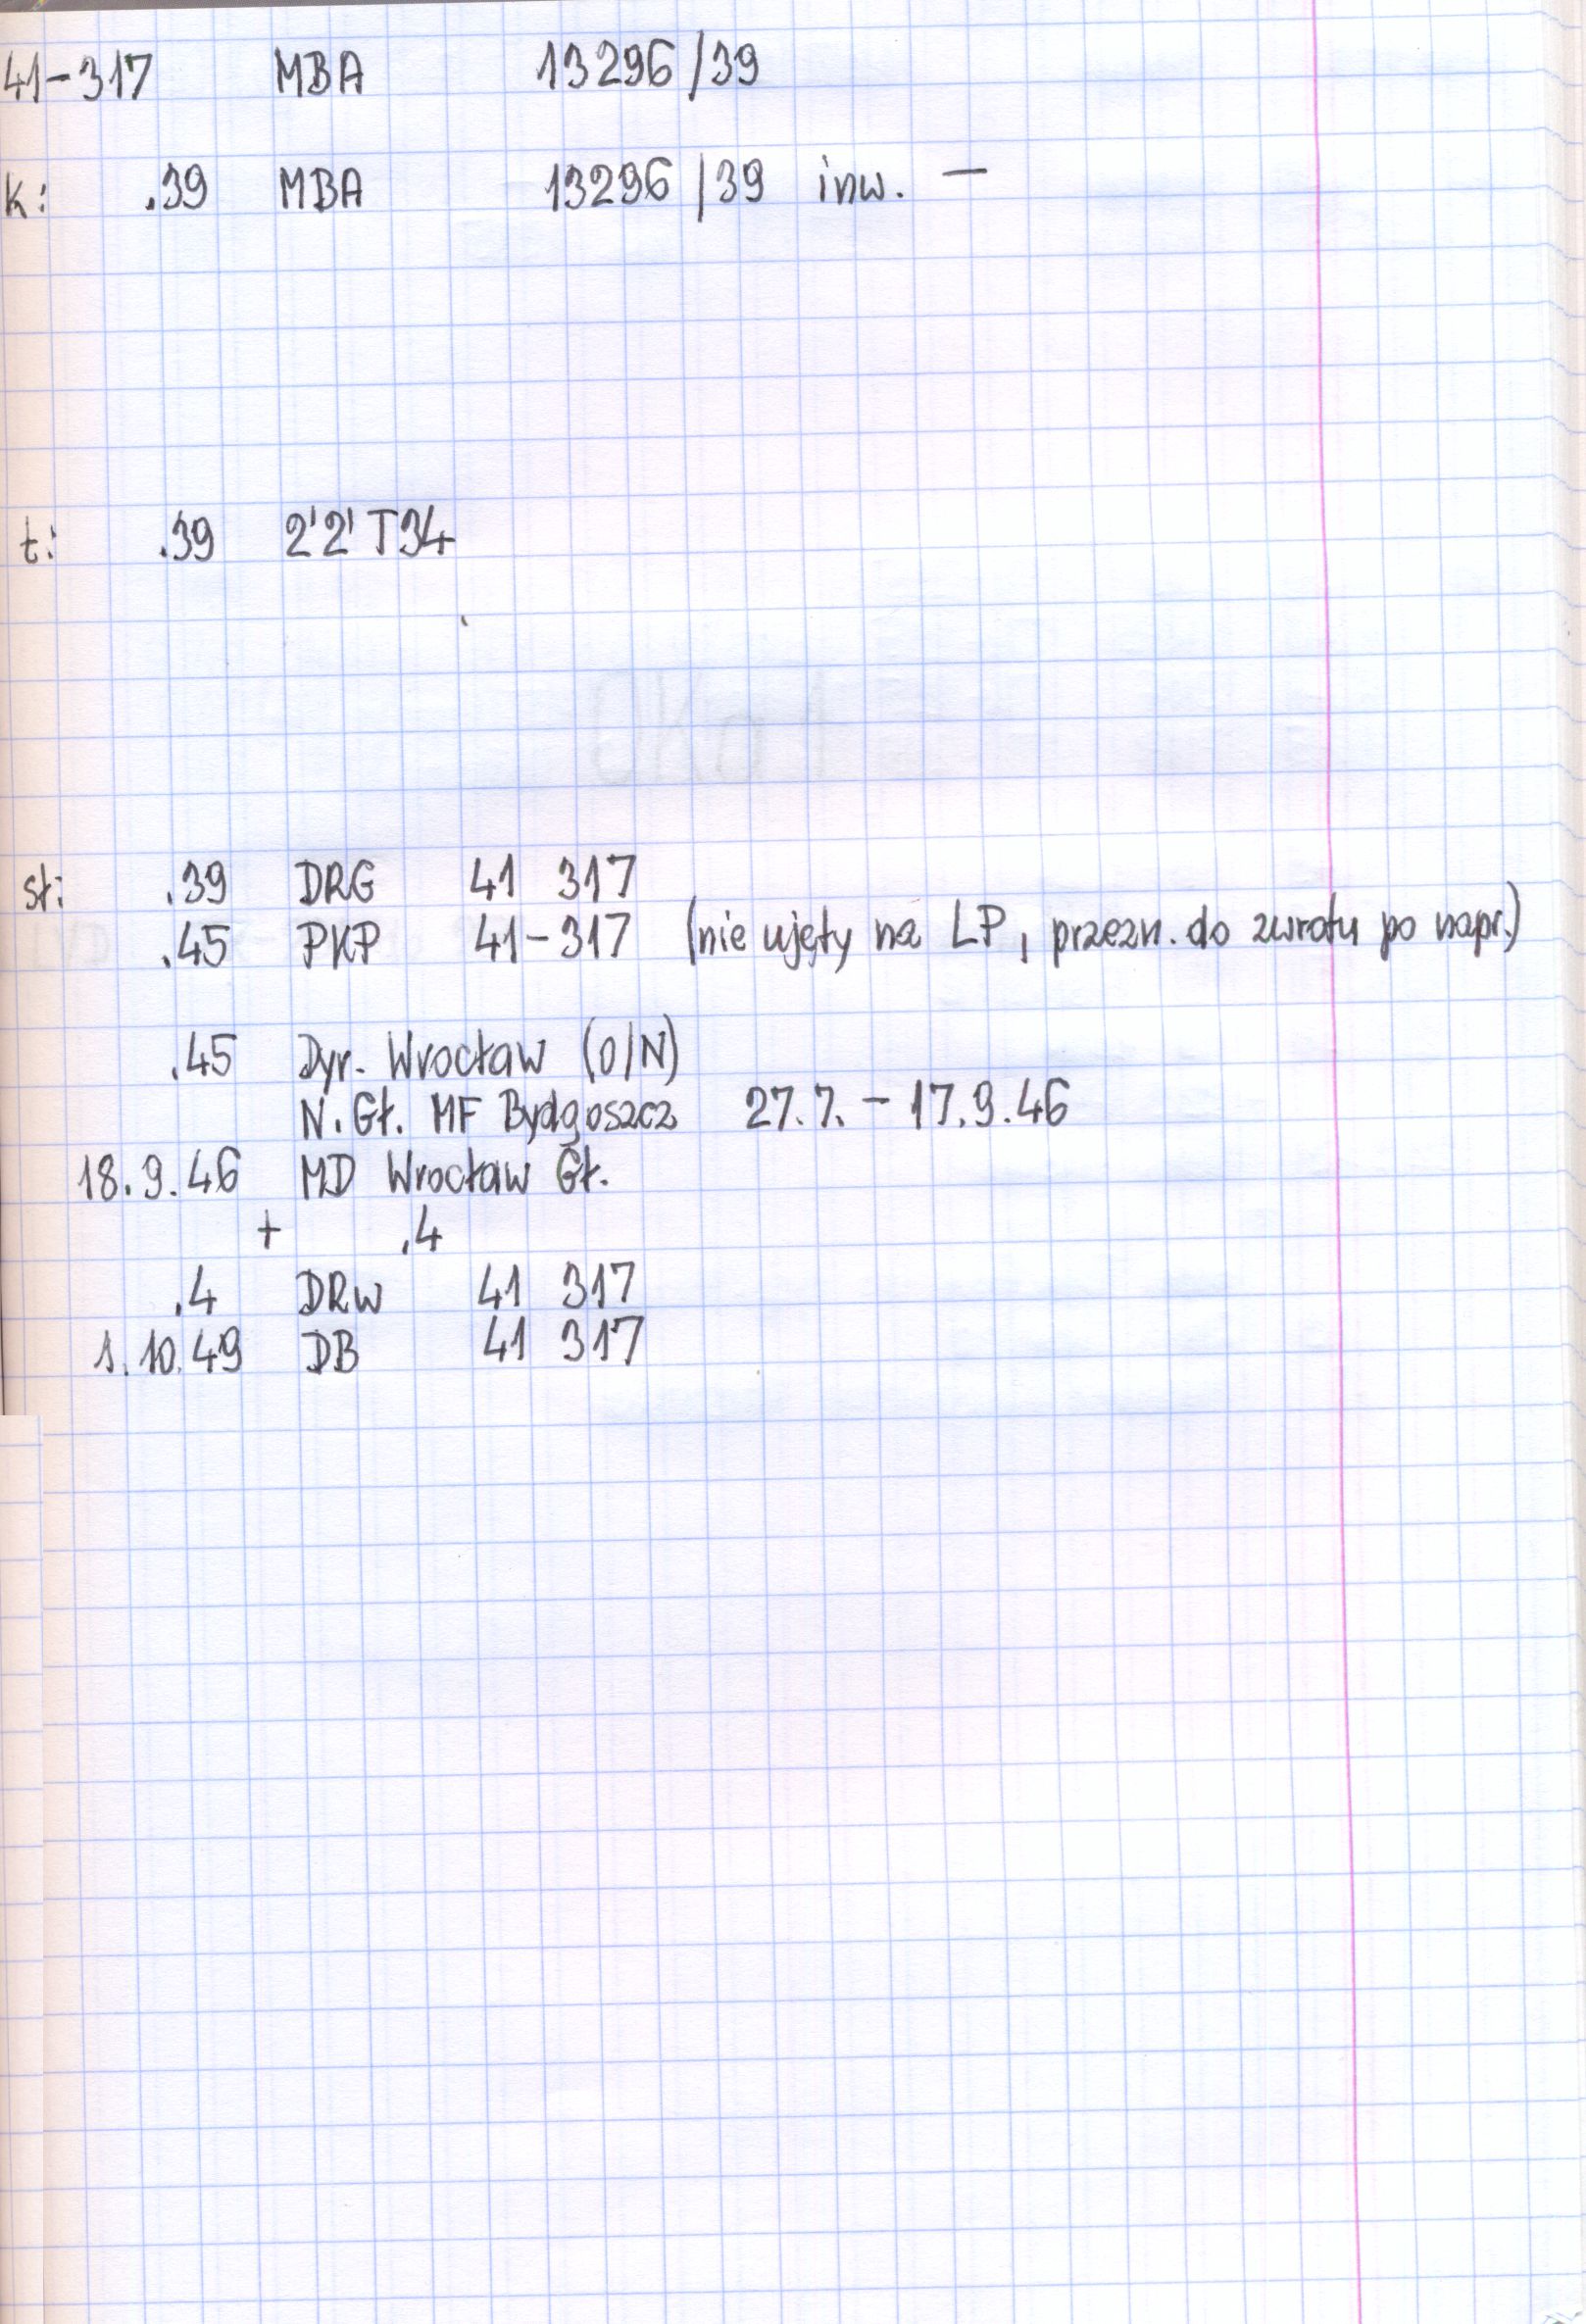 41-317 MBA 13296/39
k: .39 MBA 13296/39 inw. —
t: .39 2'2' T34
st: .39 DRG 41 317
.45 PKP 41-317 (nie ujęty na LP, przezn. do zwrotu po napr.)
.45 Dyr. Wrocław (O/N)
N. Gł. MF Bydgoszcz 27.7. - 17.9.46
18.9.46 MD Wrocław Gł.
+ .4
.4 DRw 41 317
1.10.49 DB 41 317